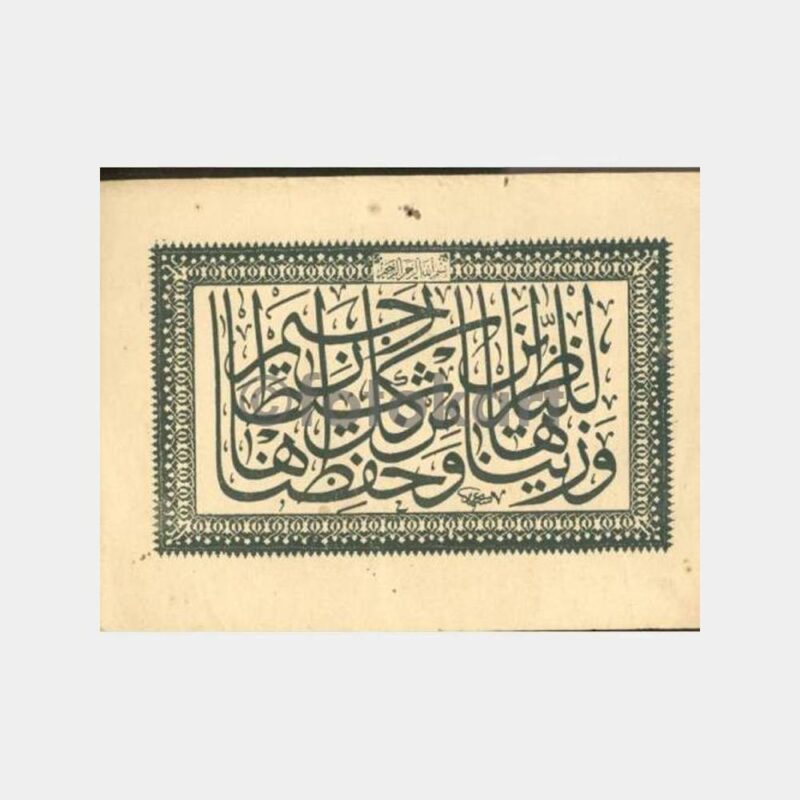 بسم الله الرحمن الرحيم
وزيناها للناظرين وحفظناها من كل شيطان رجيم
©fotokart